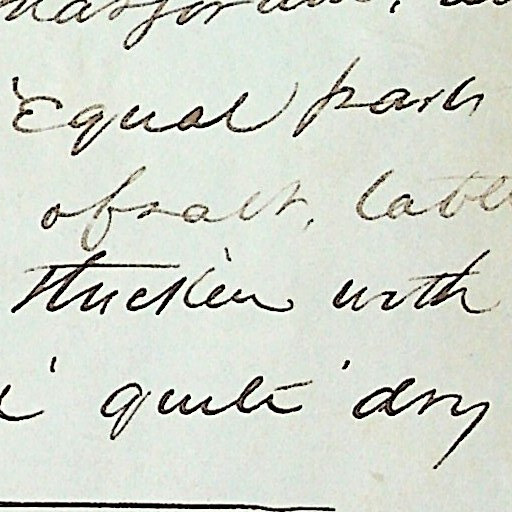 Equal parts
of salt, table
thicken with
quite dry